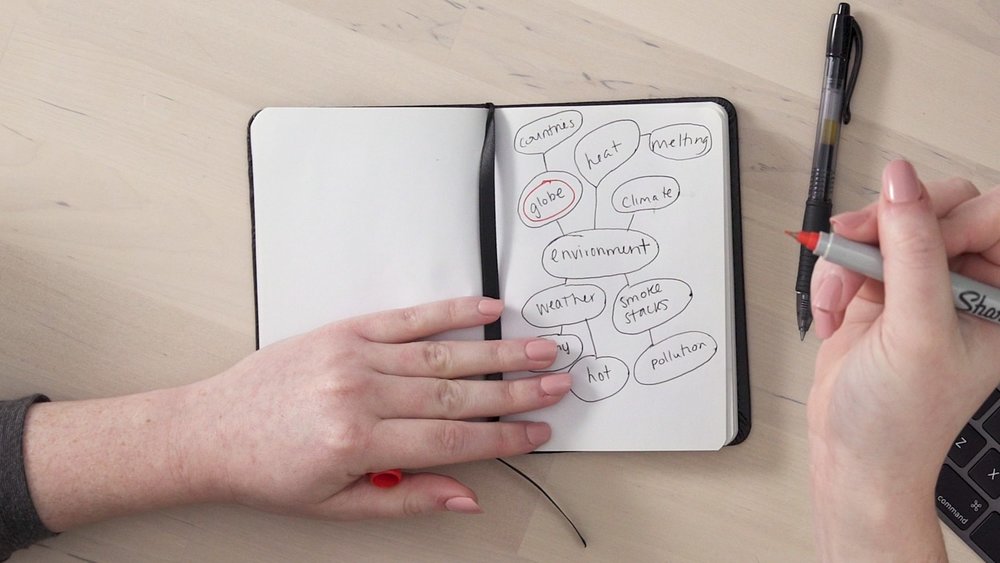 countries
heat
melting
globe
climate
environment
weather
smoke
stacks
hot
pollution
Z
X
command
⌘